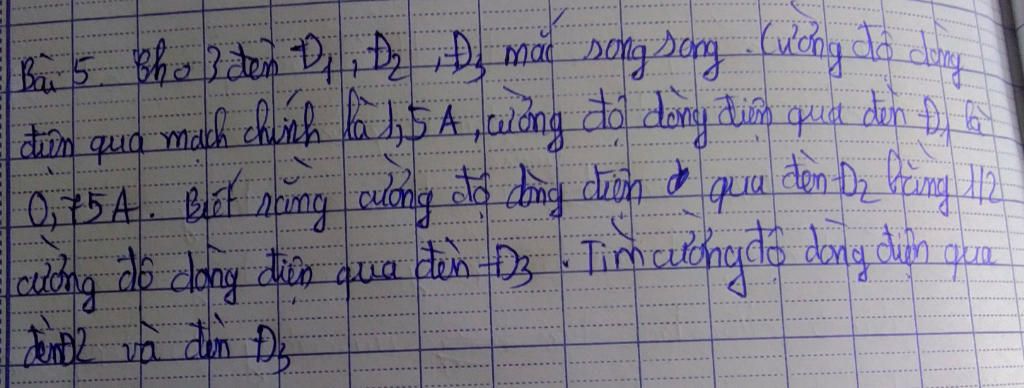 Bài 5. Cho 3 đèn Đ1, Đ2, Đ3 mắc song song. Cường độ dòng
điện qua mạch chính là 1,5A, cường độ dòng điện qua đèn Đ1 là
0,75A. Biết rằng cường độ dòng điện qua đèn Đ2 bằng 1/2
cường độ dòng điện qua đèn Đ3. Tìm cường độ dòng điện qua
đèn Đ2 và đèn Đ3